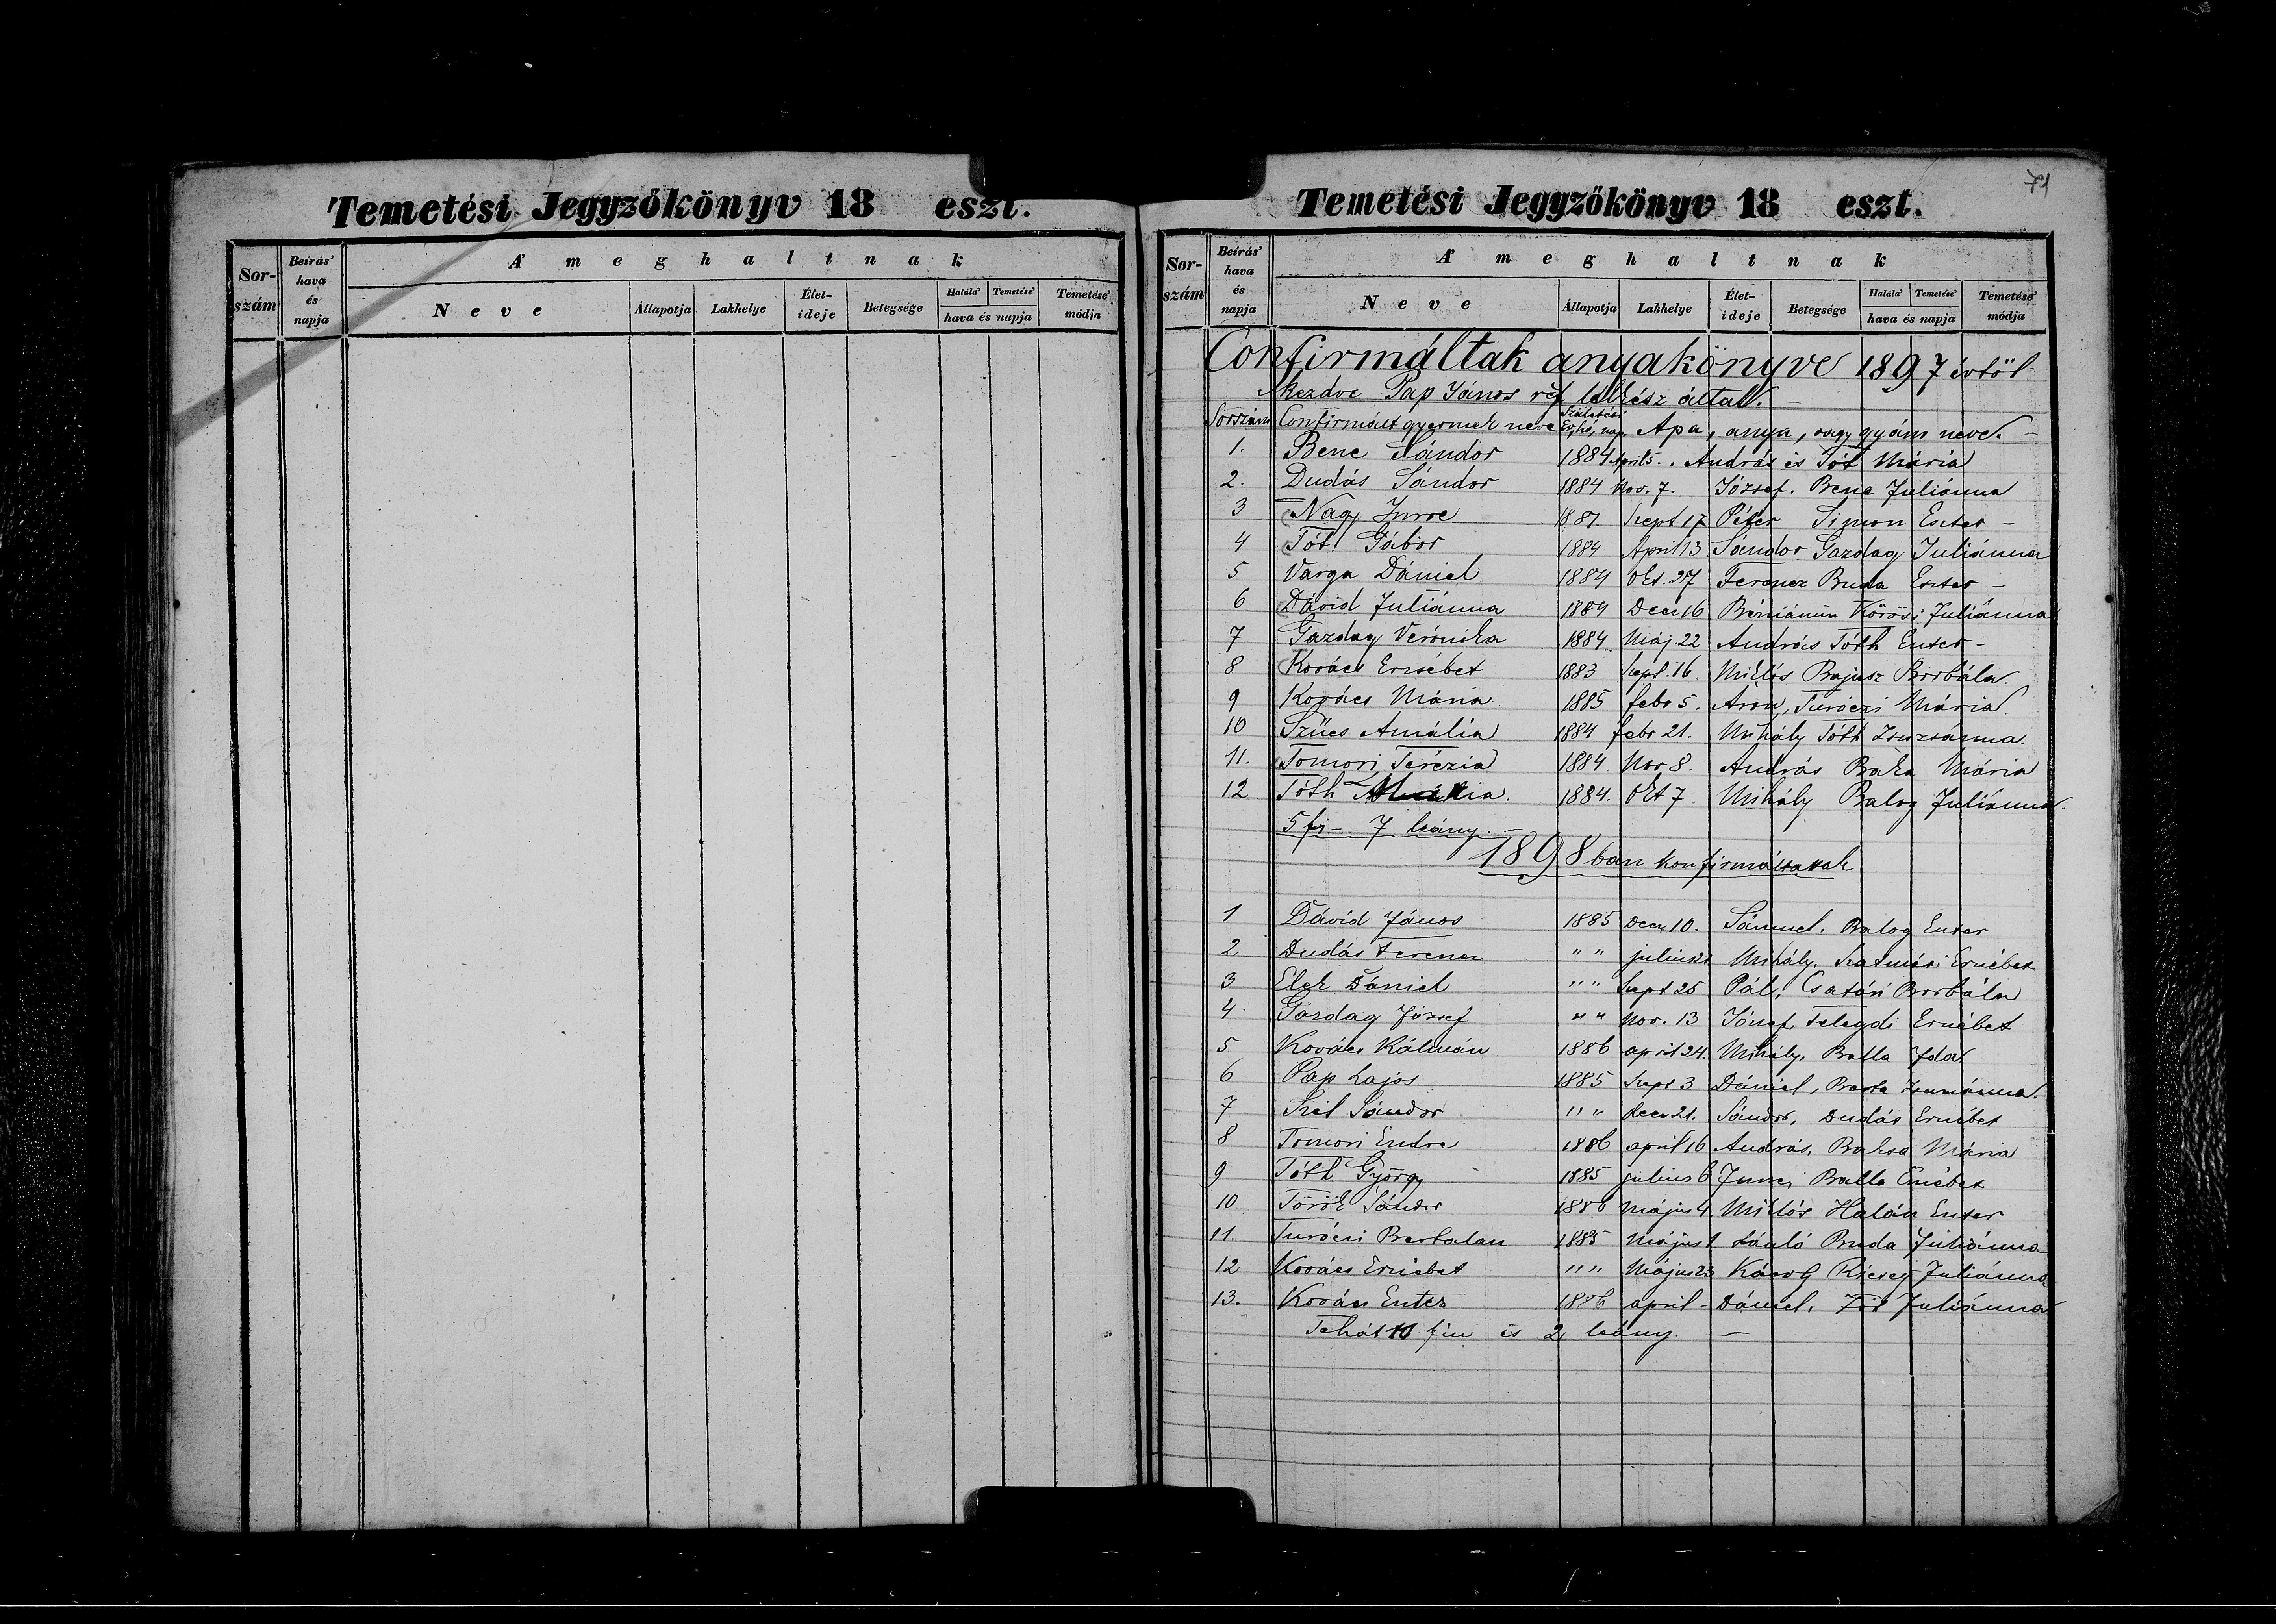 Temetési Jegyzőkönyv 18 eszt.
Sor-szám Beírás' hava és napja A' meghaltnak
Neve Állapotja Lakhelye Élet-ideje Betegsége Halála' Temetése' hava és napja Temetése' módja
71
Temetési Jegyzőkönyv 18 eszt.
Sor-szám Beírás' hava és napja A' meghaltnak
Neve Állapotja Lakhelye Élet-ideje Betegsége Halála' Temetése' hava és napja Temetése' módja
Confirmáltak anyakönyve 1897 évtől
kezdve Pap János ref. lelkész által. –
Sorszám Confirmált gyermek neve Születési Év, hó, nap. Apa, anya, vagy gyám neve. –
1. Bene Sándor 1884 April 5. András és Tót Mária
2. Dudás Sándor 1884 Nov. 7. József. Bene Juliánna
3 Nagy Imre 1881. Szept 17 Péter Simon Eszter –
4 Tót Gábor 1884 April 13 Sándor Gazdag Juliánna
5 Varga Dániel 1884 Okt. 27 Ferencz Buda Eszter –
6 Dávid Juliánna 1884 Decz 16 Béniámin Körösi Juliánna
7 Gazdag Verónika 1884. Máj. 22 András Tóth Eszter –
8 Kovács Erzsébet 1883 Szept. 16. Miklós Bajusz Borbála.
9 Kovács Mária 1885 febr 5. Áron, Turóczi Mária
10 Szűcs Amália 1884 febr 21. Mihály Tóth Zsuzsánna.
11. Tomori Terézia 1884. Nov 8. András Baksa Mária
12 Tóth Mária. 1884. Okt 7. Mihály Balog Juliánna
5 fi – 7 leány. –
1898ban konfirmáltattak
1 Dávid János 1885 Decz 10. Sámuel, Balog Eszter
2 Dudás Ferencz " " julius Mihály, Szatmári Erzsébet
3 Elek Dániel " " Szept 25 Pál, Csatári Borbála
4 Gazdag József " " Nov. 13 József, Telegdi Erzsébet
5 Kovács Kálmán 1886 april 24. Mihály, Balla Ida
6 Pap Lajos 1885 Szept 3 Dániel, Barta Zsuzsánna.
7 Szél Sándor " " Decz 21. Sándor, Dudás Erzsébet
8 Tomori Endre 1886 april 16 András, Baksa Mária
9 Tóth György 1885 julius 6 Imre, Balla Erzsébet
10 Török Sándor 1886 Május 4. Miklós Eszter
11. Turóczi Bertalan 1885 Május 1 László Buda Juliánna
12 Kovács Erzsébet " " Május 23 Károly Juliánna
13. Kovács Eszter 1886 april – Dániel, Juliánna
Tehát fiu és 2 leány. –